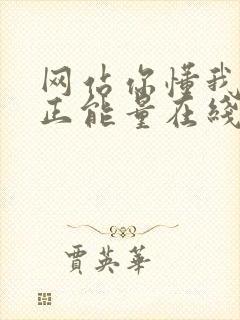 网站你懂我
正能量在线
贾英华